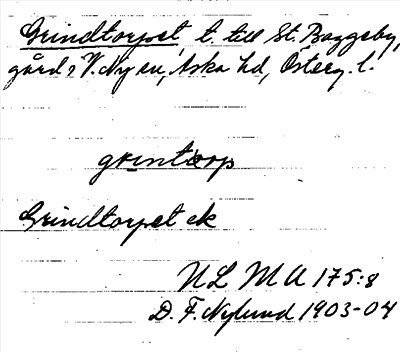 Grindtorpet t. till St. Baggeby,
gård i V. Ny sn, Aska hd, Österg. l.
grintorp
Grindtorpet ek
NL MA 175:8
D. F. Nylund 1903-04